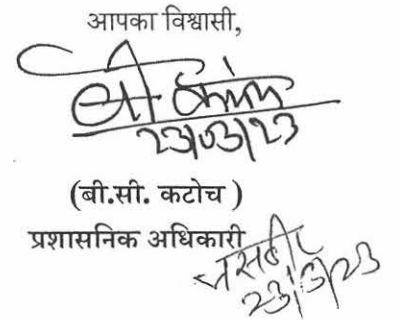 आपका विश्वासी,
बी कटोच
23/03/23
(बी.सी. कटोच )
प्रशासनिक अधिकारी
जसबीर
23/3/23